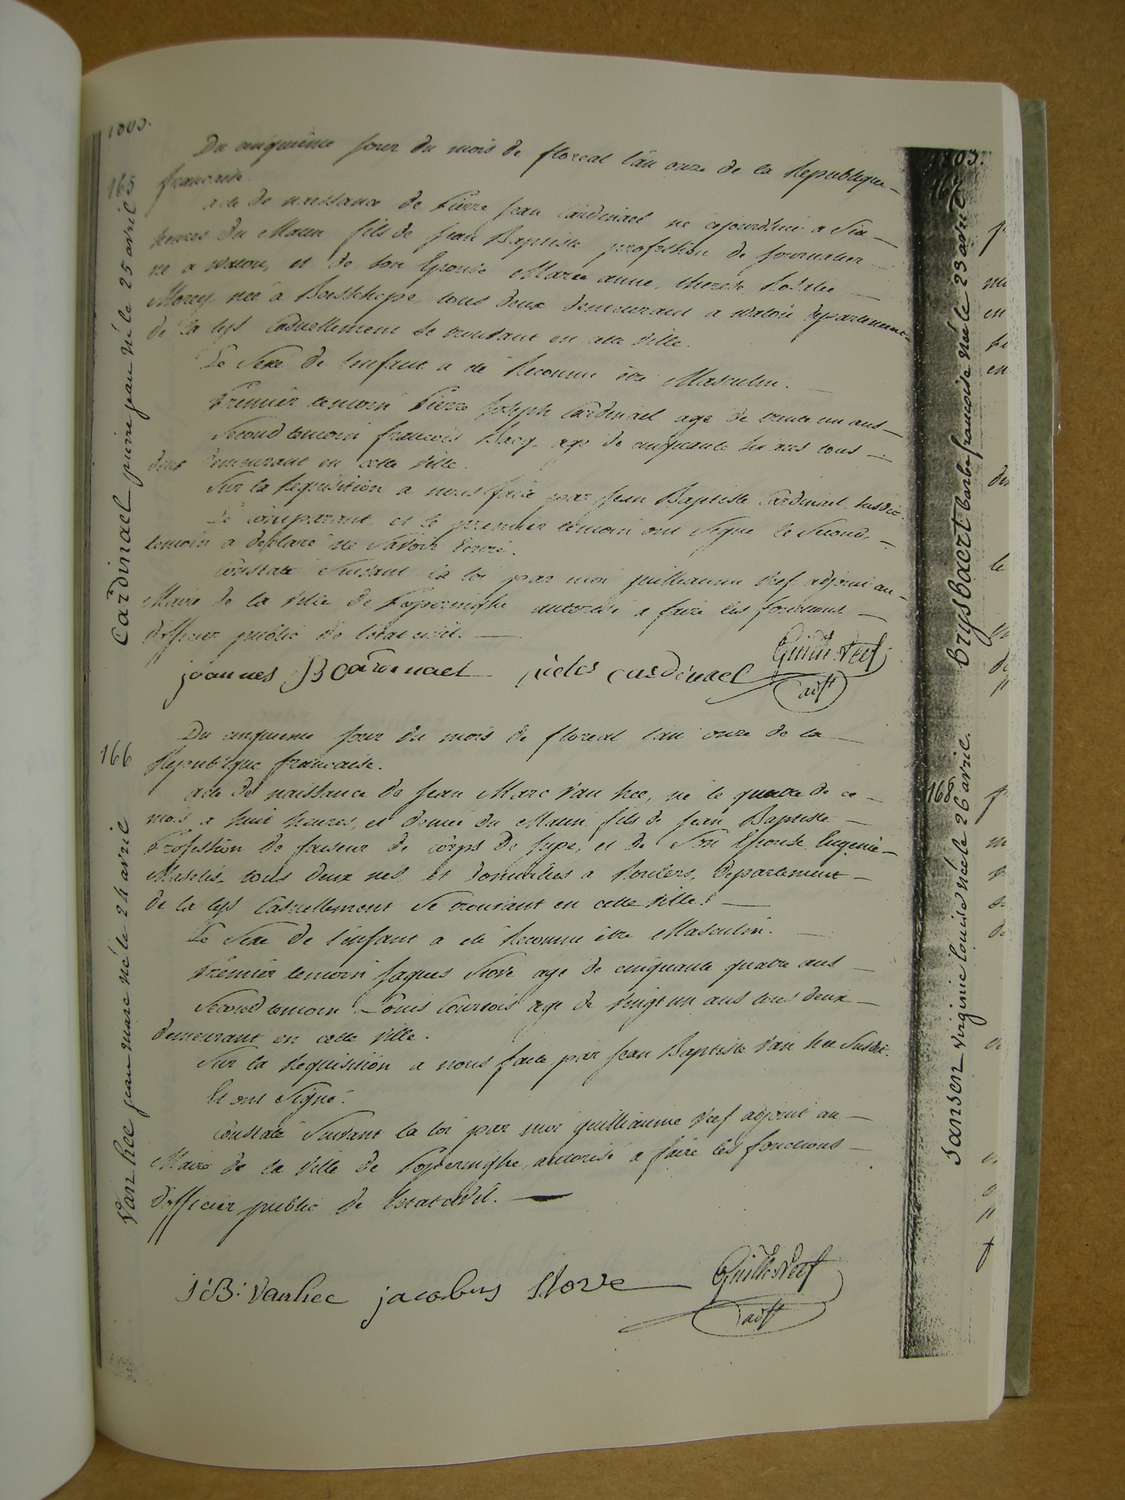 1803.
165
Cardinael pierre jean né le 25 avril
Du cinquième jour du mois de floreal l'an onze de la Republique
francaise.
acte de naissance de Pierre Jean Cardinael né aujourdhui a six
heures du Matin fils de Jean Baptiste profession de journalier
né a Watou, et de son Epouse Marie anne, therese
Morey née a Boeschepe tous deux demeurant a watou departement
de la lys Casuellement se trouvant en cette ville.
Le Sexe de l'enfant a été Reconnu être Masculin.
Premier temoin Pierre Joseph Cardinael age de trente un ans
Second temoin francois age de cinquante six ans tous
deux demeurant en cette ville.
Sur la Requisition a nous faite par Jean Baptiste Cardinael susdit
Le comparant et le premier temoin ont Signé le Second
temoin a declaré ne Savoir Ecrire.
Constaté Suivant la loi par moi guilliaume Vref adjoint au
Maire de la Ville de Poperinghe autorisé a faire les fonctions
d'officier public de l'etat civil.
joannes B Cardinael petrus cardinael Guille Vref
adjt
166
Van hee jean marc né le 24 avril
Du cinquieme jour du mois de floreal l'an onze de la
Republique francaise.
acte de naissance de Jean Marc Van hee, né le quatre de ce
mois a huit heures, et demie du Matin fils de Jean Baptiste
Profession de faiseur de corps de jupe, et de Son Epouse Eugenie
tous deux nés, et domiciliés a Roulers, Departement
de la lys Casuellement Se trouvant en cette ville.
Le Sexe de l'enfant a été Reconnu être Masculin.
Premier temoin Jaques Store age de cinquante quatre ans
Second temoin Louis Courtois age de vingt un ans tous deux
demeurant en cette ville.
Sur la Requisition a nous faite par Jean Baptiste Van hee Susdit.
Et ont Signé.
Constaté Suivant la loi par moi guilliaume Vref adjoint au
Maire de la Ville de Poperinghe, autorisé a faire les fonctions
d'officier public de l'etat civil.
J:B: Vanhee jacobus Store Guille Vref
adjt
1803.
167
brysbaert barbe francoise née le 23 avril
168
Jansen virginie louise née le 26 avril.